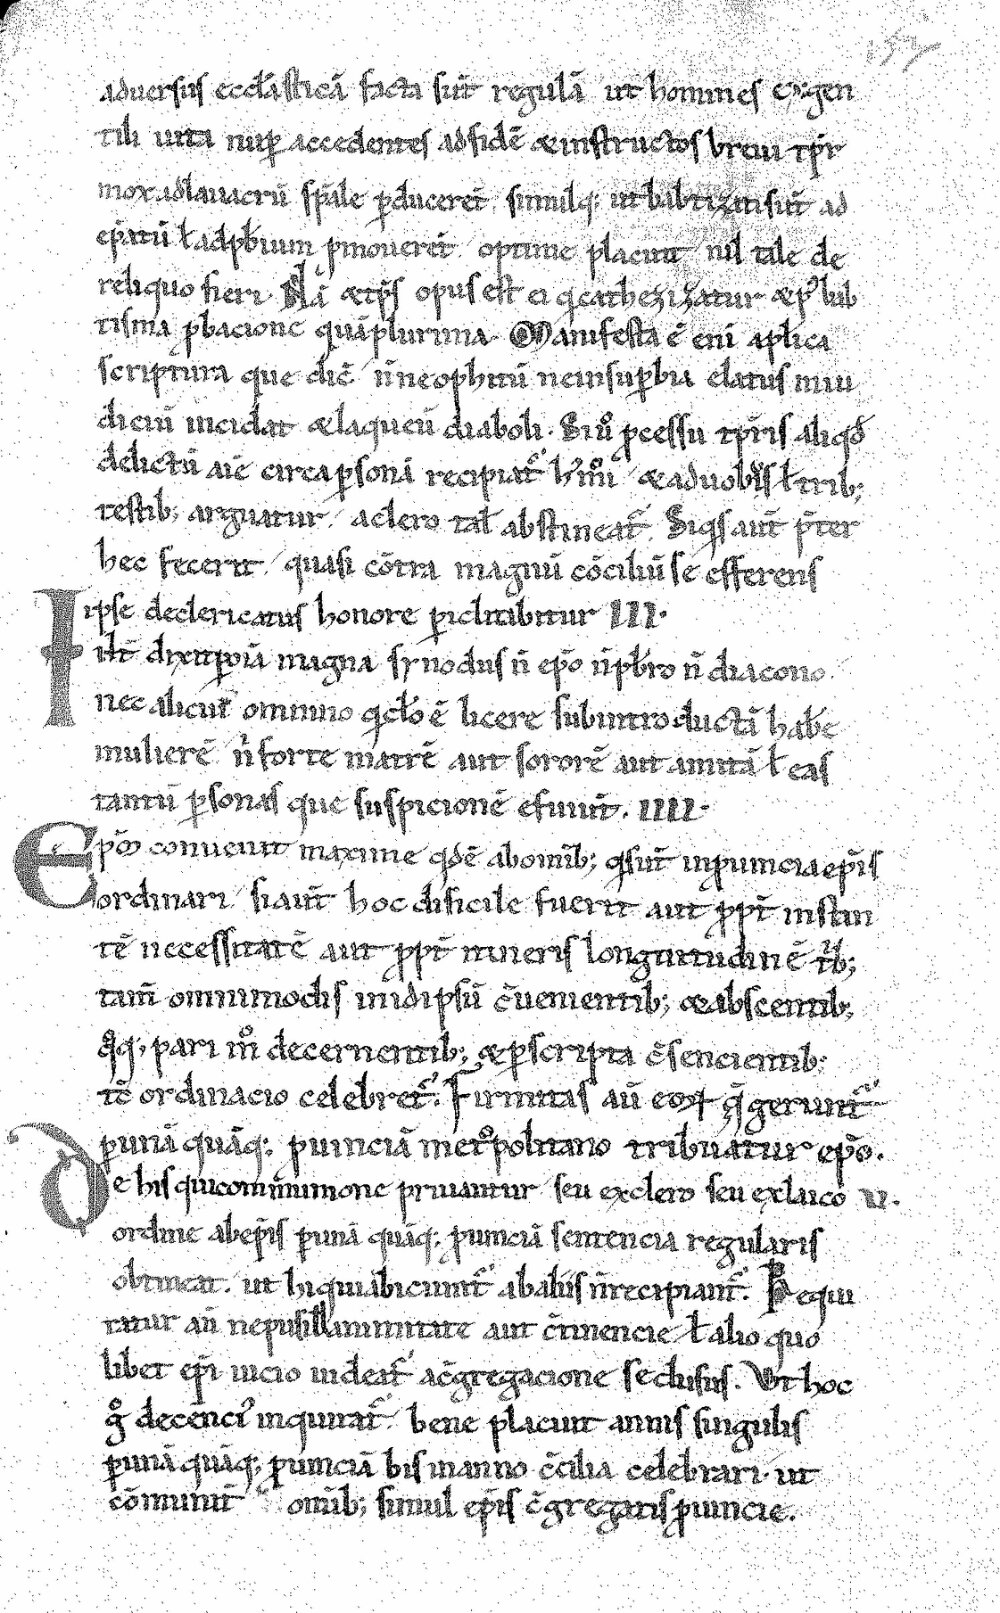 adversus eccl̄asticā facta sūt regulā ut homines ex gen
tili uita nuꝑ accedentes ad fidē æ instructos breui tp̄r
mox ad lauacrū sp̄ale ꝑducerēt. simulq; ut babtizati sūt ad
ep̄atū ł ad pb̄ium p̄mouerēt. optime placuit nil tale de
reliquo fieri. Nā æ tp̄s opus est ei q̇ cathezizatur æ p⁹ bab
tisma ꝓbacione quāplurima. Manifesta ē eni apl̄ica
scriptura que dic̄ n̄ neophitū ne in suꝑbia elatus in iu
diciū incidat æ laqueū diaboli. Si u̇ ꝓcessu tp̄ris aliqd̄
delictū aīe circa ꝑsonā recipiat᷑ hꝰm̊i æ a duobꝰ ł trib;
testib; arguatur. a clero tal̄ abstineat᷑. Siq̇s aūt p̄ter
hec fecerit. quasi cōtra magnū cōciliū se efferens
ipse de clericatus honore ꝑiclitabitur III.
Int̄dixit ꝑ oīa magna synodus n̄ ep̄o n̄ pb̄ro n̄ diacono
nec alicui omnino q̇ cl̄o ē licere subintroductā hab̄e
mulierē n̄ forte matrē aut sororē aut amitā ł eas
tantū ꝑsonas que suspicionē efuiūt. IIII.
Ep̄m conuenit maxime q̇dē ab omib; q̇ sūt in ꝓuincia ep̄is
ordinari. si aūt hoc dificile fuerit aut ꝓpt̄ instan
tē necessitatē aut ꝓpt̄ itineris longitudinē trib;
tam̄ omnimodis in id ipsū c̄uenientib; æ abscentib;
q̊q; pari m̊ decernentib; æ ꝑ scripta c̄sencientib;
tc̄ ordinacio celebret᷑. Firmitas aū eoꝝ q̄ gerunt᷑
ꝑ unā quāq; ꝓuinciā metropolitano tribuatur ep̄o.
De his qui communione priuantur seu ex clero seu ex laico V.
ordine ab ep̄is ꝑ unā quāq; ꝓuinciā sentencia regularis
obtineat. ut hi qui abiciunt᷑ ab aliis n̄ recipiant᷑. Requi
ratur aū ne pusillanimitate aut c̄tencie ł alio quo
libet ep̄i uicio uideat᷑ a c̄gregacione seclusus. Vt hoc
g̊ decencꝰ inquirat᷑. bene placuit annis singulis
ꝑ unā quāq; ꝓuinciā bis in anno c̄cilia celebrari. ut
cōmunit̄ omīb; simul ep̄is c̄gregatis ꝓuincie.